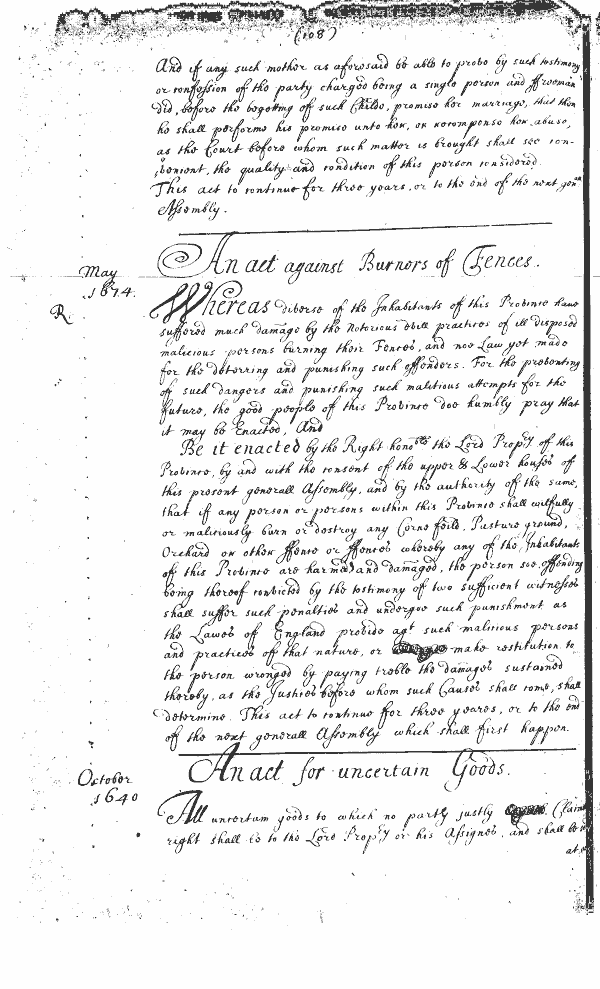 (108)
And if any such mother as aforesaid be able to prove by such testimony
or confession of the party charged being a single person and ffreeman
did, before the begotting of such Childe, promise her marriage, that then
he shall performe his promise unto her, or recompense her abuse,
as the Court before whom such matter is brought shall see con-
venient, the quality and condition of this person considered.
This act to continue for three years, or to the end of the next gen:ll
Assembly.
An act against Burners of Fences.
May
1674.
R
Whereas diverse of the Inhabitants of this Province have
suffered much damage by the Notorious evill practices of ill disposed
malicious persons burning their Fences, and noe Law yet made
for the deterring and punishing such offenders. For the preventing
of such dangers and punishing such malitious attempts for the
future, the good people of this Province doe humbly pray that
it may be Enacted, And
Be it enacted by the Right hono:ble the Lord Prop:ry of this
Province, by and with the consent of the upper & Lower houses of
this present generall Assembly, and by the authority of the same,
that if any person or persons within this Province shall wilfully
or maliciously burn or destroy any Corne feild, Pasture ground,
Orchard or other ffence or ffences whereby any of the Inhabitants
of this Province are harmed and damaged, the person soe offending
being thereof convicted by the testimony of two sufficient witnesses
shall suffer such penalties and undergoe such punishment as
the Lawes of England provide ag:t such malicious persons
and practices of that nature, or make restitution to
the person wronged by paying treble the damages sustained
thereby, as the Justices before whom such Causes shall come, shall
determine. This act to continue for three yeares, or to the end
of the next generall Assembly which shall first happen.
An act for uncertain Goods.
October
1640
All uncertain goods to which no party justly Claim
right shall be to the Lord Prop:ry or his Assignes, and shall be
at